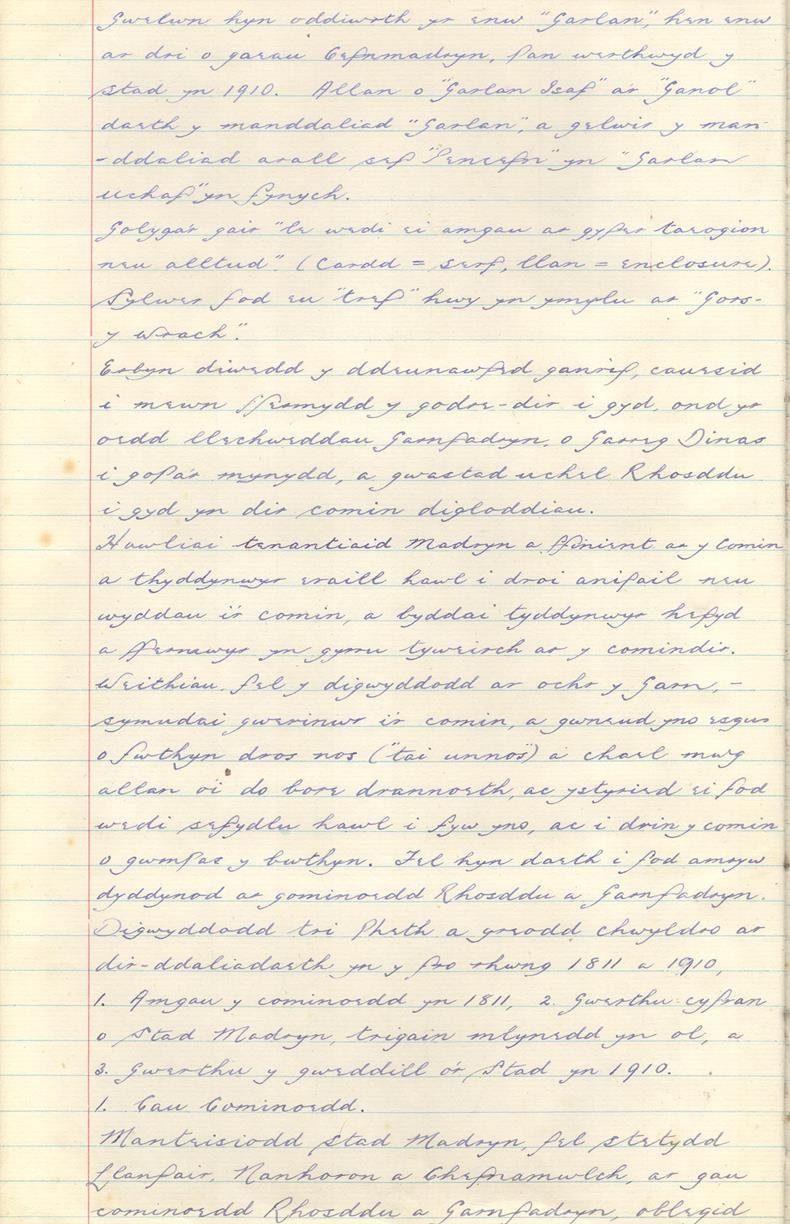 Gwelwn hyn oddiwrth yr enw "Garlan", hen enw
ar dri o gaeau Cefnmadryn, pan werthwyd y
stad yn 1910. Allan o "Garlan Isaf" a'r "Ganol"
daeth y manddaliad "Garlan", a gelwir y man-
-ddaliad arall sef "Pencefn" yn "Garlan
uchaf" yn fynych.
Golyga'r gair "lle wedi ei amgau ar gyfer taeogion
neu alltud". (Cardd = serf, llan = enclosure).
Sylwer fod eu "tref" hwy yn ymylu ar "Gors-
y Wrach".
Erbyn diwedd y ddeunawfed ganrif, cauesid
i mewn ffermydd y godre-dir i gyd, ond yr
oedd llechweddau Garnfadryn, o Garreg Dinas
i gopa'r mynydd, a gwastad uchel Rhosddu
i gyd yn dir comin digloddiau.
Hawliai tenantiaid Madryn a ffinient ar y Comin
a thyddynwyr eraill hawl i droi anifail neu
wyddau i'r comin, a byddai tyddynwyr hefyd
a ffermwyr yn gyrru tyweirch ar y comindir.
Weithiau, fel y digwyddodd ar ochr y Garn, -
symudai gwerinwr i'r comin, a gwneud yno esgus
o fwthyn dros nos ("tai unnos") a chael mwg
allan o'i do bore drannoeth, ac ystyried ei fod
wedi sefydlu hawl i fyw yno, ac i drin y comin
o gwmpas y bwthyn. Fel hyn daeth i fod amryw
dyddynod ar gominoedd Rhosddu a Garnfadryn.
Digwyddodd tri pheth a greodd chwyldro ar
dir-ddaliadaeth yn y fro rhwng 1811 a 1910,
1. Amgau y cominoedd yn 1811, 2. Gwerthu cyfran
o Stad Madryn, trigain mlynedd yn ol, a
3. Gwerthu y gweddill o'r Stad yn 1910.
1. Cau Cominoedd.
Manteisiodd Stad Madryn, fel stetydd
Llanfair, Nanhoron a Chefnamwlch, ar gau
cominoedd Rhosddu a Garnfadryn, oblegid